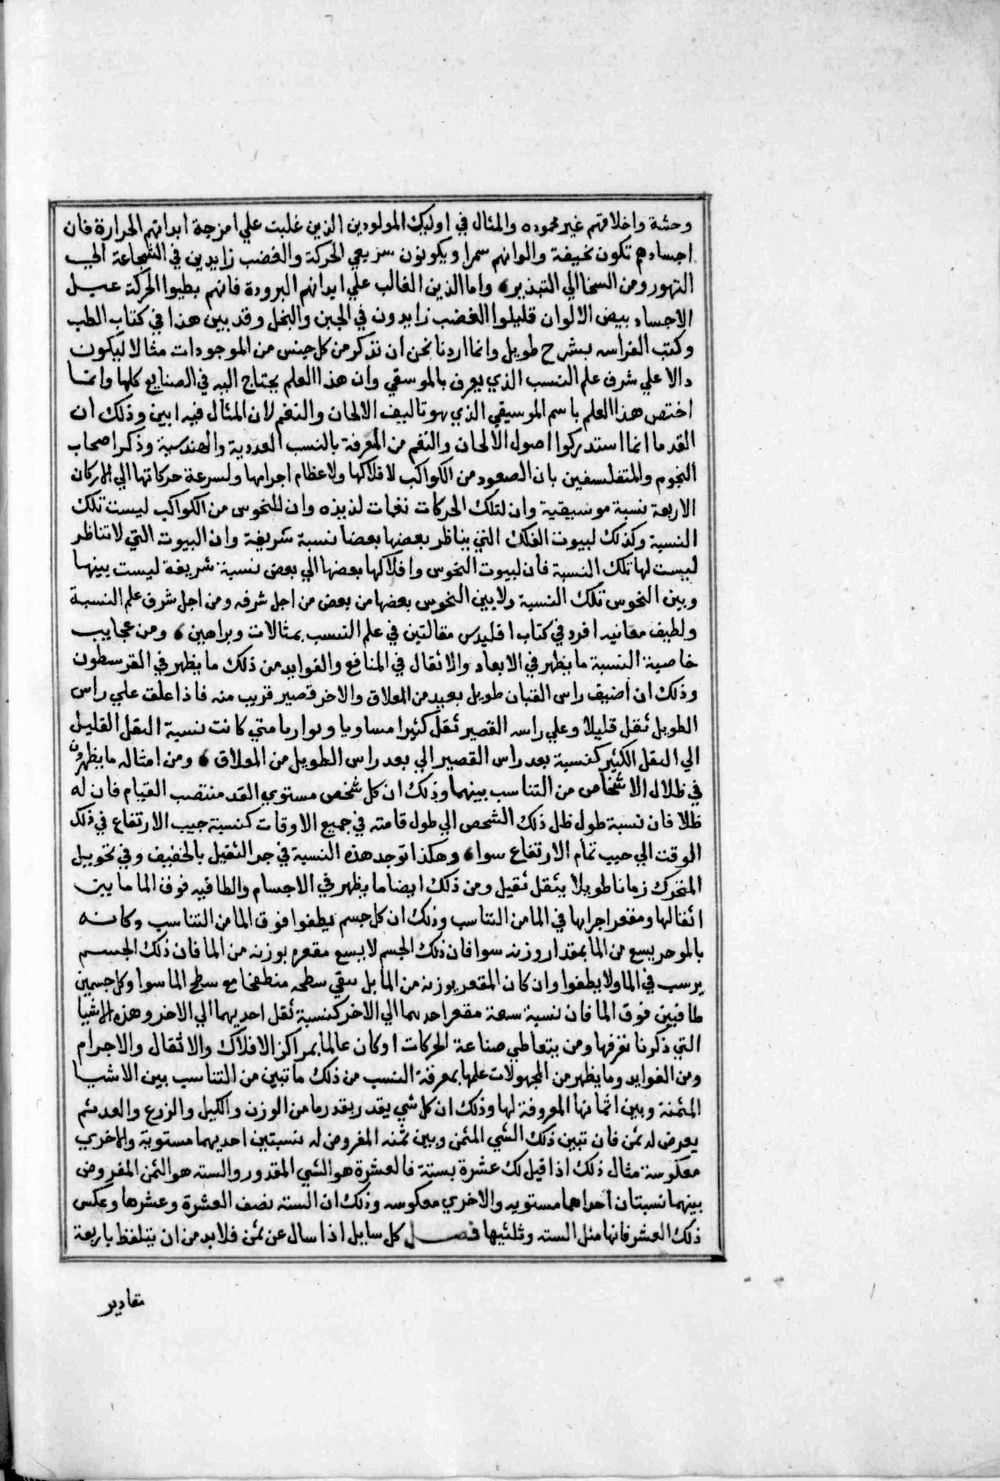 وحشة واخلاقهم غير محموده والمثال في اوليك المولودين الذين غلبت علي امزجة ابدانهم الحرارة فان
اجسادهم تكون نحيفة والوانهم سمرا ويكونون سريعي الحركة والغضب زايدين في الشجاعة الي
التهور ومن السخا الي التبذير واما الذين الغالب علي ابدانهم البرودة فانهم بطيوا الحركة عبل
الاجساد بيض الالوان قليلوا الغضب زايدون في الجبن والبخل وقد بين هذا في كتاب الطب
وكتب الفراسه بشرح طويل وانما اردنا نحن ان نذكر من كل جنس من الموجودات مثالا ليكون
دالا علي شرف علم النسب الذي يعرف بالموسقي وان هذا العلم يحتاج اليه في الصنايع كلها وانما
اختص هذا العلم باسم الموسيقي الذي هو تاليف الالحان والنغم لان المثال فيه ابين وذلك ان
القدما انما استدركوا اصول الالحان والنغم من المعرفة بالنسب العددية والهندسية وذكر اصحاب
النجوم والمتفلسفين بان الصعود من الكواكب لافلاكها ولاعظام اجرامها ولسرعة حركاتها الي الاركان
الاربعة نسبة موسيقية وان لتلك الحركات نغمات لذيذه وان للنحوس من الكواكب ليست تلك
النسبة وكذلك لبيوت الفلك التي يناظر بعضها بعضا نسبة شريفة وان البيوت التي لا تناظر
ليست لها تلك النسبة فان لبيوت النحوس وافلاكها بعضها الي بعض نسبة شريفة ليست بينها
وبين النحوس تلك النسبة ولا بين النحوس بعضها من بعض من اجل شرفه ومن اجل شرف علم النسبة
ولطيف معانيه افرد في كتاب اقليدس مقالتين في علم النسب بمثالات وبراهين ومن عجايب
خاصية النسبة ما يظهر في الابعاد والاثقال في المنافع والفوايد من ذلك ما يظهر في القرسطون
وذلك ان اضيف راس القبان طويل بعيد من المعلاق والاخر قصير قريب منه فاذا علق علي راس
الطويل ثقل قليلا وعلي راسه القصير ثقل كثيرا مساويا وتوازيا متي كانت نسبة الثقل القليل
الي الثقل الكثير كنسبة بعد راس القصير الي بعد راس الطويل من المعلاق ومن امثاله ما يظهر
في ظلال الاشخاص من التناسب بينهما وذلك ان كل شخص مستوي القد منتصب القيام فان له
ظلا فان نسبة طول ظل ذلك الشخص الي طول قامته في جميع الاوقات كنسبة جيب الارتفاع في ذلك
الوقت الي جيب تمام الارتفاع سوا وهكذا توجد هذه النسبة في جر الثقيل بالخفيف وفي تحويل
المتحرك زمانا طويلا بثقل ثقيل ومن ذلك ايضا ما يظهر في الاجسام والطافيه فوق الما ما بين
اثقالها ومقعر اجرامها في الما من التناسب وذلك ان كل جسم يطفوا فوق الما من التناسب وكانه
يسع من الما بمقدار وزنه سوا فان ذلك الجسم لا يسع مقعره بوزنه من الما فان ذلك الجسم
يرسب في الما ولا يطفوا وان كان المقعر بوزنه من الما بل بقي سطحه منطفخا مع سطح الما سوا وكل جسمين
طافيين فوق الما فان نسبة سعة مقعر احدهما الي الاخر كنسبة ثقل احديهما الي الاخر وهذه الاشيا
التي ذكرنا نعرفها ومن يتعاطي صناعة الحركات او كان عالما بمراكز الافلاك والاثقال والاجرام
ومن الفوايد وما يظهر من المجهولات علمها بمعرفة النسب من ذلك ما تبين من التناسب بين الاشيا
المثمنة وبين اثمانها المعروفة لها وذلك ان كل شي يقدر بقدر ما من الوزن والكيل والزرع والعد ثم
يعرض له ثمن فان تبين ذلك الشي المثمن وبين ثمنه المفروض له نسبتين احديهما مستوية والاخري
معكوسة مثال ذلك اذا قيل لك عشرة بستة فالعشرة هو الشي المقدور والسته هو الثمن المفروض
بينهما نسبتان احداهما مستويه والاخري معكوسه وذلك ان السته نصف العشرة وعشرها وعكس
ذلك العشر فانها مثل السته وثلثيها فصل كل سايل اذا سال عن ثمن فلا بد من ان يتلفظ باربعة
مقادير